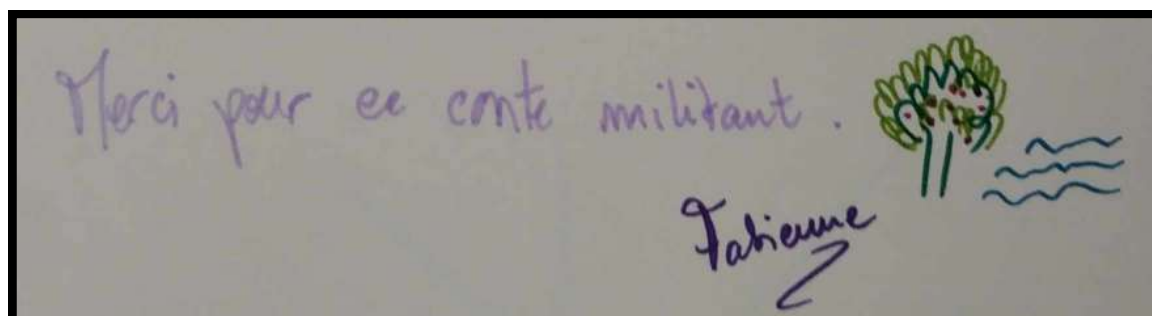 Merci pour ce conte militant.
Fabienne